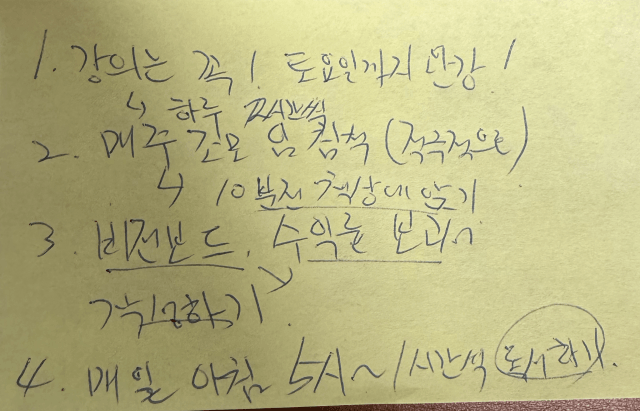 1. 강의는 꼭! 토요일까지 완강!
↳ 하루 2시간씩
2. 매주 조모임 참석 (적극적으로)
↳ 10분전 책상에 앉기
3. 비전보드, 수익률 보고~
기하기
4. 매일 아침 5시~ 1시간씩 독서하기.